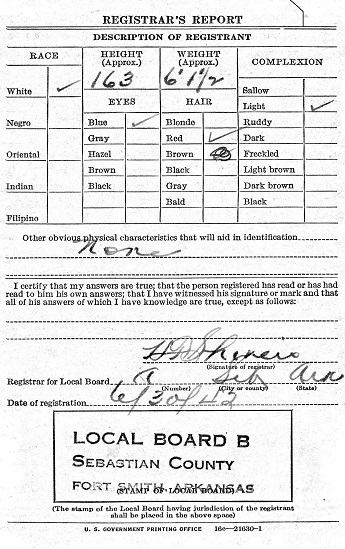 REGISTRAR'S REPORT
DESCRIPTION OF REGISTRANT
RACE
HEIGHT (Approx.)
WEIGHT (Approx.)
COMPLEXION
163
6' 1 1/2
White ✓
EYES
HAIR
Sallow
Light ✓
Negro
Blue ✓
Blonde
Ruddy
Gray
Red ✓
Dark
Oriental
Hazel
Brown
Freckled
Brown
Black
Light brown
Indian
Black
Gray
Dark brown
Bald
Black
Filipino
Other obvious physical characteristics that will aid in identification
None
I certify that my answers are true; that the person registered has read or has had
read to him his own answers; that I have witnessed his signature or mark and that
all of his answers of which I have knowledge are true, except as follows:
(Signature of registrar)
Registrar for Local Board Seb Ark
(Number) (City or county) (State)
Date of registration 6/30/42
LOCAL BOARD B
SEBASTIAN COUNTY
FORT SMITH, ARKANSAS
(STAMP OF LOCAL BOARD)
(The stamp of the Local Board having jurisdiction of the registrant
shall be placed in the above space)
U. S. GOVERNMENT PRINTING OFFICE 16—21630-1